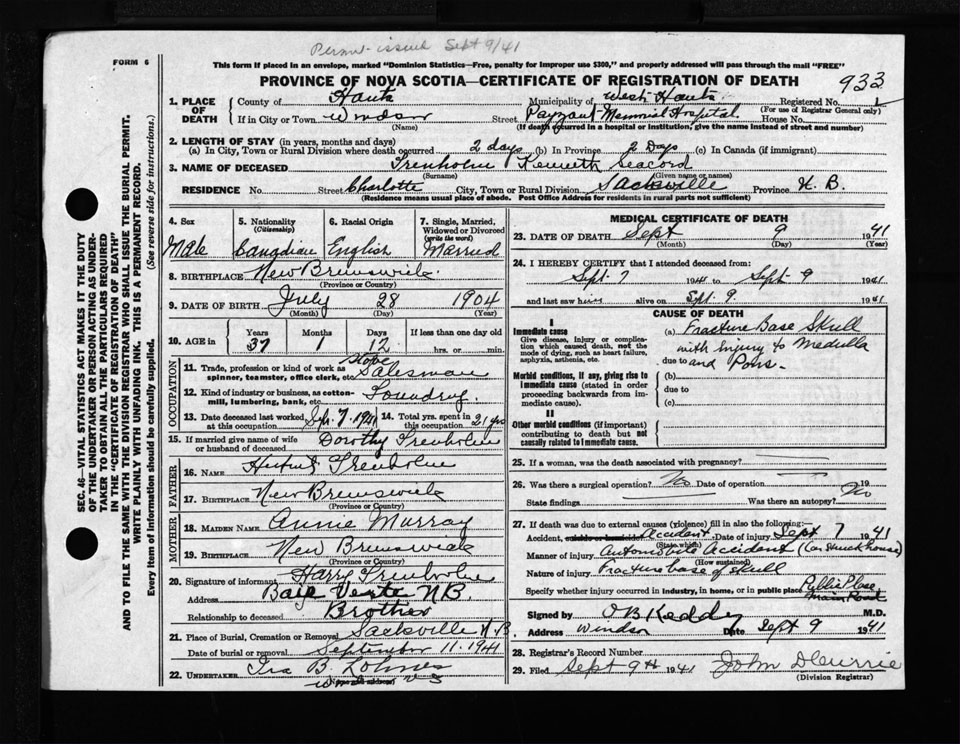 Permit issued Sept 9/41
FORM 6
This form if placed in an envelope, marked "Dominion Statistics—Free, penalty for improper use $300," and properly addressed will pass through the mail "FREE"
PROVINCE OF NOVA SCOTIA—CERTIFICATE OF REGISTRATION OF DEATH
933
SEC. 46—VITAL STATISTICS ACT MAKES IT THE DUTY
OF THE UNDERTAKER OR PERSON ACTING AS UNDER-
TAKER TO OBTAIN ALL THE PARTICULARS REQUIRED
IN THE "CERTIFICATE OF REGISTRATION OF DEATH"
AND TO FILE THE SAME WITH THE DIVISION REGISTRAR WHO SHALL ISSUE THE BURIAL PERMIT.
WRITE PLAINLY WITH UNFADING INK. THIS IS A PERMANENT RECORD.
Every item of information should be carefully supplied. (See reverse side for instructions.)
1. PLACE OF DEATH County of Hants Municipality of West Hants Registered No. 1
(For use of Registrar General only)
If in City or Town Windsor Street Payzant Memorial Hospital House No.
(Name) (If death occurred in a hospital or institution, give the name instead of street and number)
2. LENGTH OF STAY (in years, months and days)
(a) In City, Town or Rural Division where death occurred 2 days (b) In Province 2 Days (c) In Canada (if immigrant)
3. NAME OF DECEASED Trenholm Kenneth Seacord
(Surname) (Given name or names)
RESIDENCE No. Street Charlotte City, Town or Rural Division Sackville Province N. B.
(Residence means usual place of abode. Post Office Address for residents in rural parts not sufficient)
4. Sex Male
5. Nationality (Citizenship) Canadian
6. Racial Origin English
7. Single, Married, Widowed or Divorced (write the word) Married
8. BIRTHPLACE New Brunswick
(Province or Country)
9. DATE OF BIRTH July 28 1904
(Month) (Day) (Year)
10. AGE in Years 37 Months 1 Days 12 If less than one day old
hrs. or min.
OCCUPATION
11. Trade, profession or kind of work as spinner, teamster, office clerk, etc. Stove Salesman
12. Kind of industry or business, as cotton-mill, lumbering, bank, etc. Foundry
13. Date deceased last worked at this occupation Sep. 7, 1941 14. Total yrs. spent in this occupation 21 yrs
15. If married give name of wife or husband of deceased Dorothy Trenholm
FATHER
16. NAME Trenholm
17. BIRTHPLACE New Brunswick
(Province or Country)
MOTHER
18. MAIDEN NAME Annie Murray
19. BIRTHPLACE New Brunswick
(Province or Country)
20. Signature of informant Harry Trenholm
Address Baie Verte NB
Relationship to deceased Brother
21. Place of Burial, Cremation or Removal Sackville N.B.
Date of burial or removal September 11. 1941
22. UNDERTAKER Ira B.
Windsor N S
MEDICAL CERTIFICATE OF DEATH
23. DATE OF DEATH Sept 9 1941
(Month) (Day) (Year)
24. I HEREBY CERTIFY that I attended deceased from:
Sept. 7 1941 to Sept. 9 1941
and last saw him alive on Sept. 9 1941
CAUSE OF DEATH
I
Immediate cause
Give disease, injury or complication which caused death, not the mode of dying, such as heart failure, asphyxia, asthenia, etc.
(a) Fracture Base Skull
with injury to Medulla
due to and Pons.
Morbid conditions, if any, giving rise to immediate cause (stated in order proceeding backwards from immediate cause).
(b)
due to
(c)
II
Other morbid conditions (if important) contributing to death but not causally related to immediate cause.
25. If a woman, was the death associated with pregnancy?
26. Was there a surgical operation? No Date of operation
State findings Was there an autopsy? No
27. If death was due to external causes (violence) fill in also the following:
Accident, suicide or homicide? Accident Date of injury Sept 7 1941
(State which)
Manner of injury Automobile Accident (Car struck house)
(How sustained)
Nature of injury Fracture base of skull
Specify whether injury occurred in industry, in home, or in public place Public Place
Main Road
Signed by O B Keddy M.D.
Address Windsor Date Sept 9 1941
28. Registrar's Record Number
29. Filed Sept 9th 1941 John D Currie
(Division Registrar)